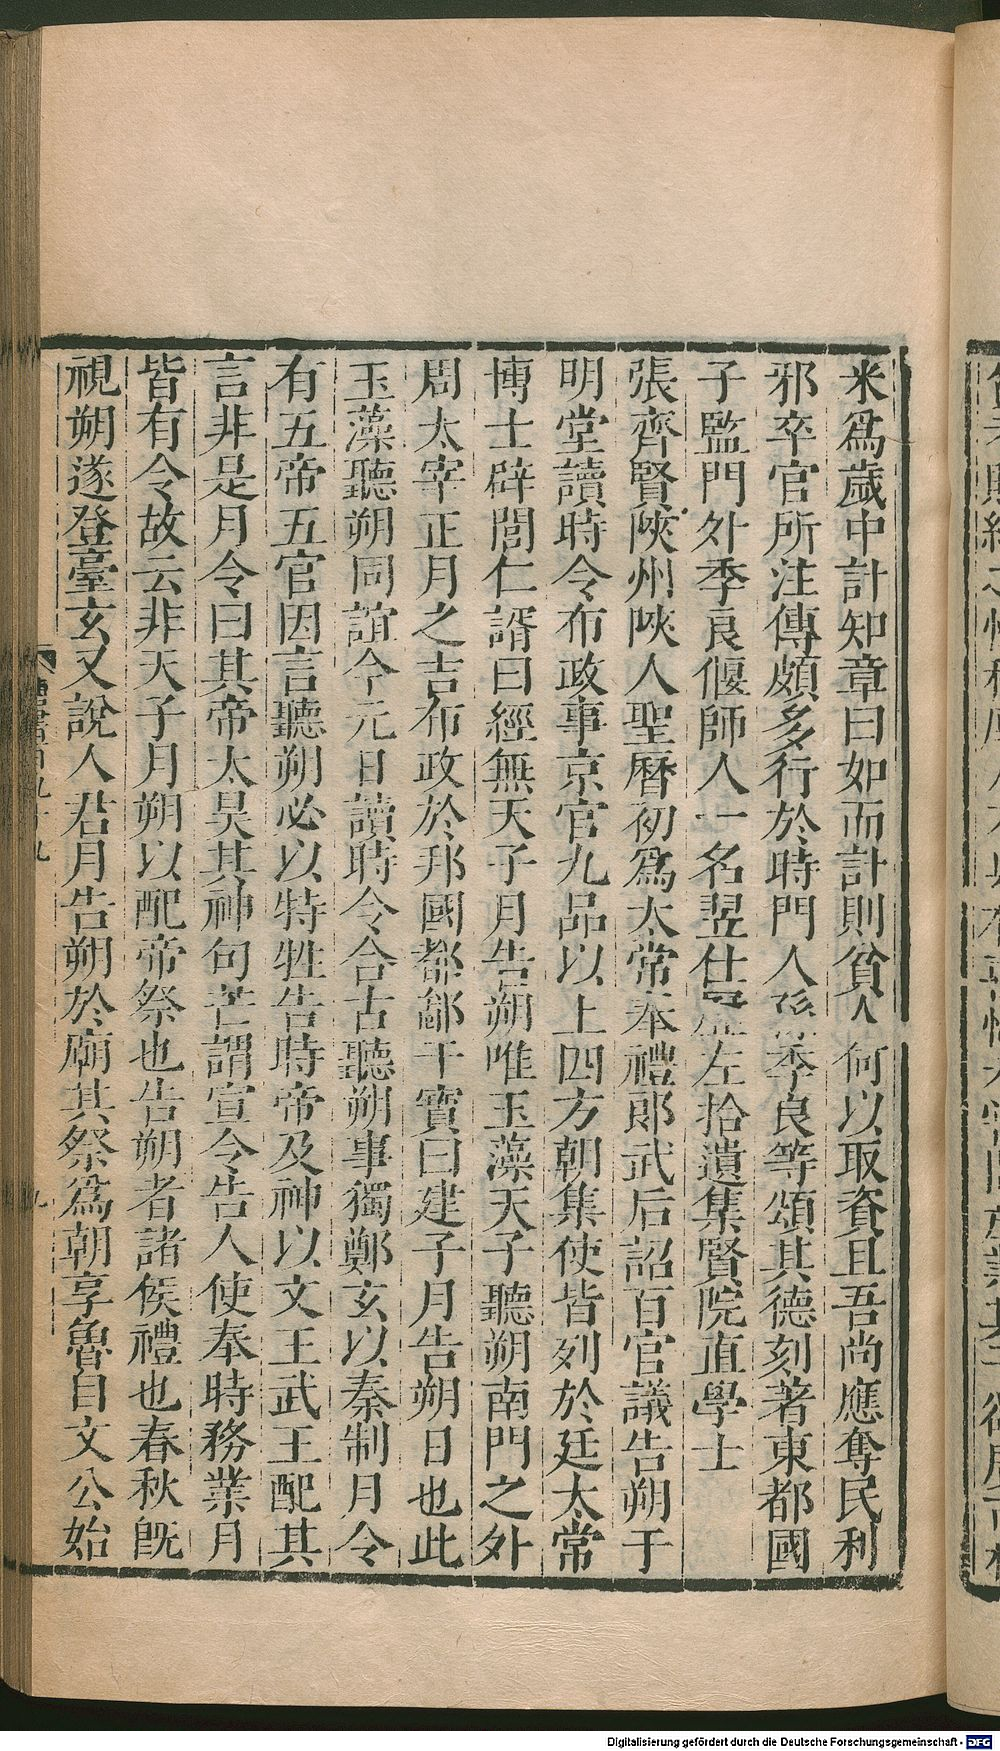 米爲歲中計知章曰如而計則貧人何以取資且吾尚應奪民利
邪卒官所注傳頗多行於時門人孫季良等頌其德刻著東都國
子監門外季良偃師人一名翌仕歷左拾遺集賢院直學士
張齊賢陝州陝人聖曆初爲太常奉禮郎武后詔百官議告朔于
明堂讀時令布政事京官九品以上四方朝集使皆列於廷太常
博士辟閭仁諝曰經無天子月告朔唯玉藻天子聽朔南門之外
周太宰正月之吉布政於邦國都鄙干寶曰建子月告朔日也此
玉藻聽朔同誼今元日讀時令合古聽朔事獨鄭玄以秦制月令
有五帝五官因言聽朔必以特牲告時帝及神以文王武王配其
言非是月令曰其帝太昊其神句芒謂宣令告人使奉時務業月
皆有令故云非天子月朔以配帝祭也告朔者諸侯禮也春秋旣
視朔遂登臺玄又說人君月告朔於廟其祭爲朝享魯自文公始
唐書百九十九
九
Digitalisierung gefördert durch die Deutsche Forschungsgemeinschaft - DFG